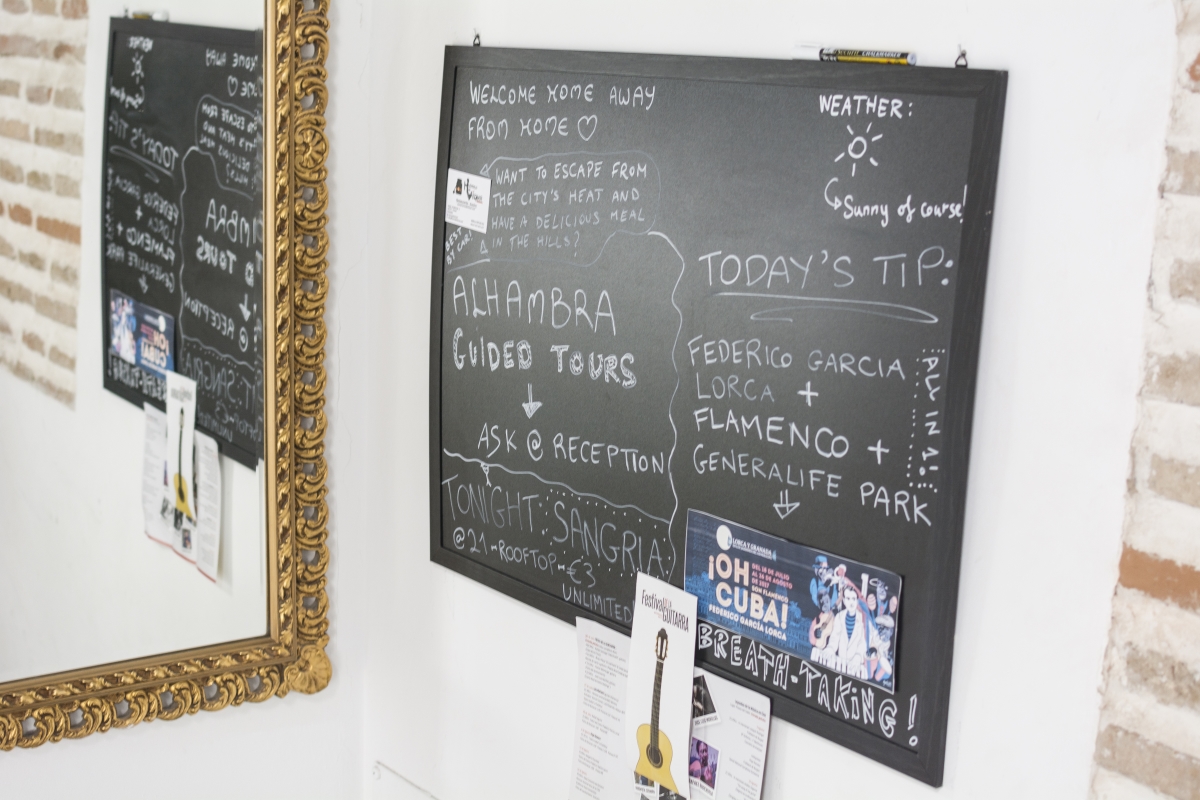 WELCOME HOME AWAY
FROM HOME ♡
WANT TO ESCAPE FROM
THE CITY'S HEAT AND
HAVE A DELICIOUS MEAL
IN THE HILLS?
BEST
BY CAR!
ALHAMBRA
GUIDED TOURS
ASK @ RECEPTION
TONIGHT: SANGRIA
@21 - ROOFTOP - €3
UNLIMITED
WEATHER:
Sunny of course!
TODAY'S TIP:
FEDERICO GARCIA
LORCA +
FLAMENCO +
GENERALIFE PARK
ALL IN 1!
LORCA Y GRANADA
¡OH
CUBA!
DEL 18 DE JULIO
AL 26 DE AGOSTO
DE 2017
CON FLAMENCO
FEDERICO GARCÍA LORCA
BREATH-TAKING!
Festival
GUITARRA